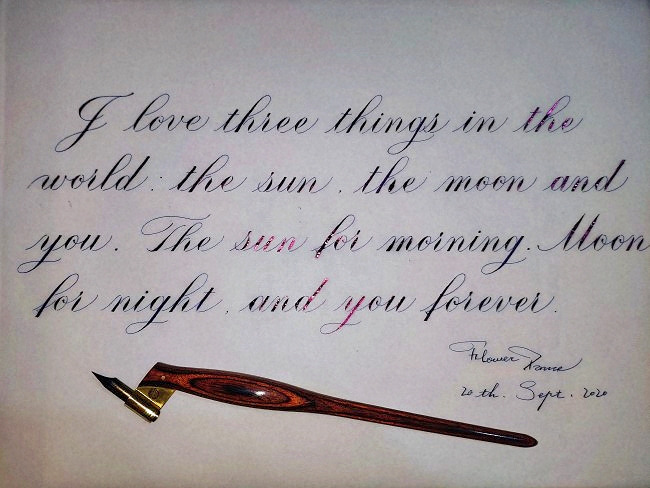 I love three things in the
world: the sun, the moon and
you. The sun for morning. Moon
for night, and you forever.
Flower
20th. Sept. 2020